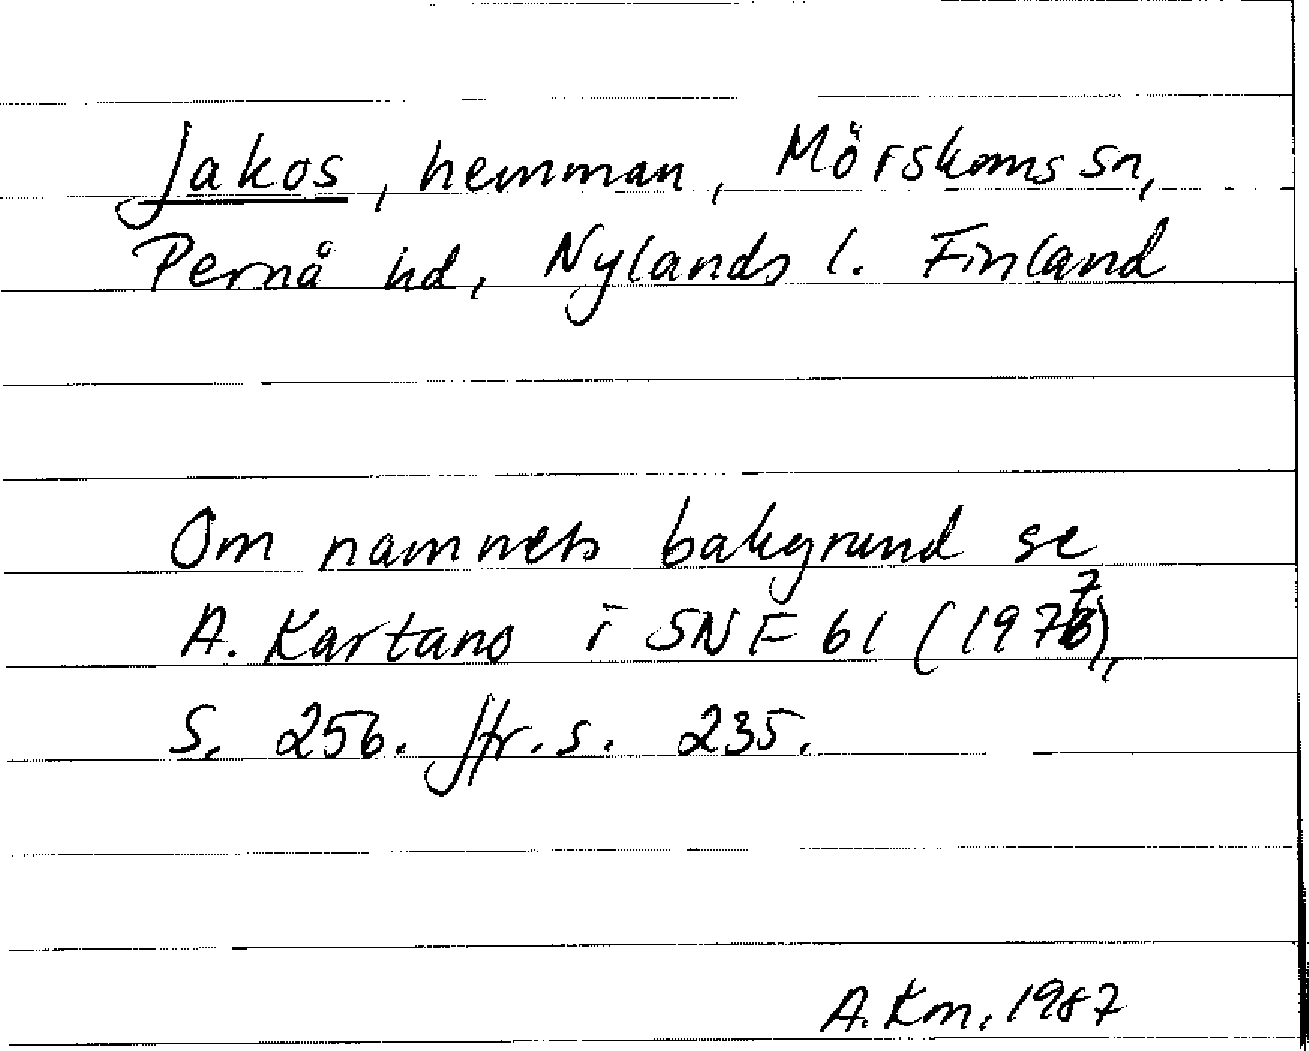 Jakos, hemman, Mörskoms sn,
Pernå hd, Nylands l. Finland
Om namnets bakgrund se
A. Kartano i SNF 61 (1977),
S. 256. Jfr. s. 235.
A. Km. 1987